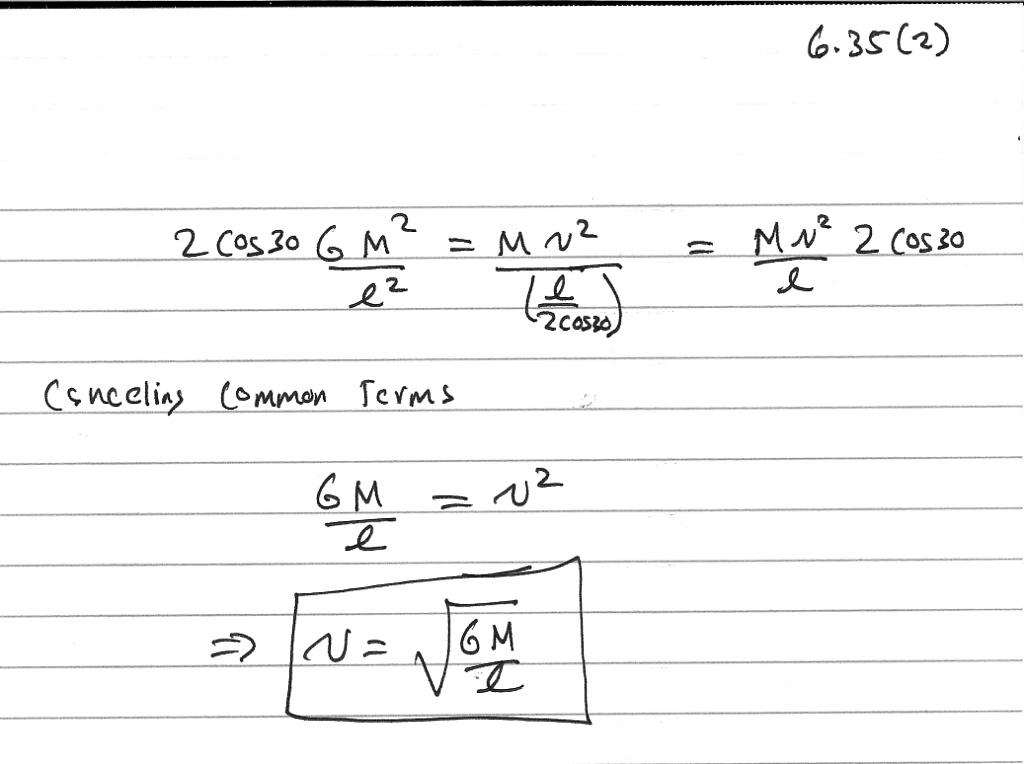 6.35(2)
2 cos30 G M² / ℓ² = M v² / (ℓ / 2cos30) = M v² / ℓ 2 cos30
Canceling Common Terms
GM / ℓ = v²
⇒ v = √(GM / ℓ)